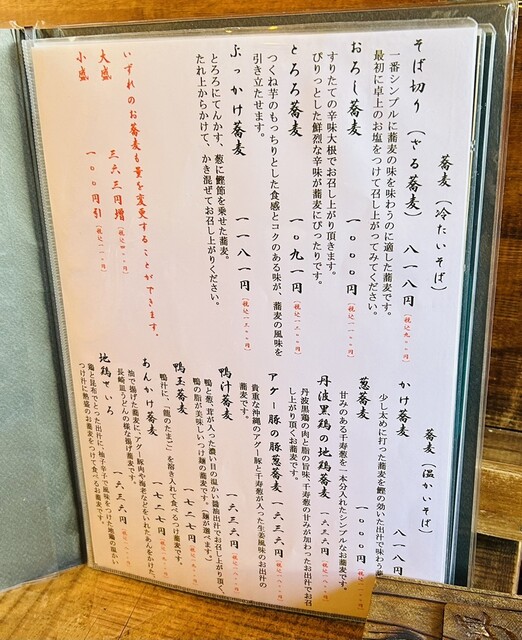 蕎麦（冷たいそば）
そば切り（ざる蕎麦）　八一八円（税込九〇〇円）
一番シンプルに蕎麦の味を味わうのに適した蕎麦です。
最初に卓上のお塩をつけて召し上がってみてください。
おろし蕎麦　一〇〇〇円（税込一一〇〇円）
すりたての辛味大根でお召し上がり頂きます。
ぴりっとした鮮烈な辛味が蕎麦にぴったりです。
とろろ蕎麦　一〇九一円（税込一二〇〇円）
つくね芋のもっちりとした食感とコクのある味が、蕎麦の風味を
引き立たせます。
ぶっかけ蕎麦　一一八一円（税込一三〇〇円）
とろろにてんかす、葱に鰹節を乗せた蕎麦。
たれ上からかけて、かき混ぜてお召し上がりください。
いずれのお蕎麦も量を変更することができます。
大盛　三六三円増（税込四〇〇円）
小盛　一〇〇円引（税込一一〇円）
蕎麦（温かいそば）
かけ蕎麦　八一八円（税込
少し太めに打った蕎麦を鰹の効いた出汁で味わう蕎
葱蕎麦
甘みのある千寿葱を一本分入れたシンプルなお蕎麦です。
丹波黒鶏の地鶏蕎麦　一六三六円
丹波黒鶏の肉と脂の旨味、千寿葱の甘みが加わったお出汁でお召
し上がり頂くお蕎麦です。
アグー豚の豚葱蕎麦　一六三六円
貴重な沖縄のアグー豚と千寿葱が入った生姜風味のお出汁の
蕎麦です。
鴨汁蕎麦　一六三六円
鴨と葱、茸が入った濃い目の温かい醤油出汁でお召し上がり頂く、
鴨の脂が美味しいつけ麺の蕎麦です。（麺が選べます。）
鴨玉蕎麦　一七二七円
鴨汁に、「龍のたまご」を溶き入れて食べるつけ蕎麦です。
あんかけ蕎麦　一七二七円
油で揚げた蕎麦に、アグー豚肉や海老などをいれたあんをかけた、
長崎皿うどんの様な揚げ蕎麦です。
地鶏せいろ　一六三六円
鶏と昆布でとった出汁に、柚子辛子で風味をつけた地鶏の温かい
つけ汁に熱盛のお蕎麦をつけて食べるお蕎麦です。